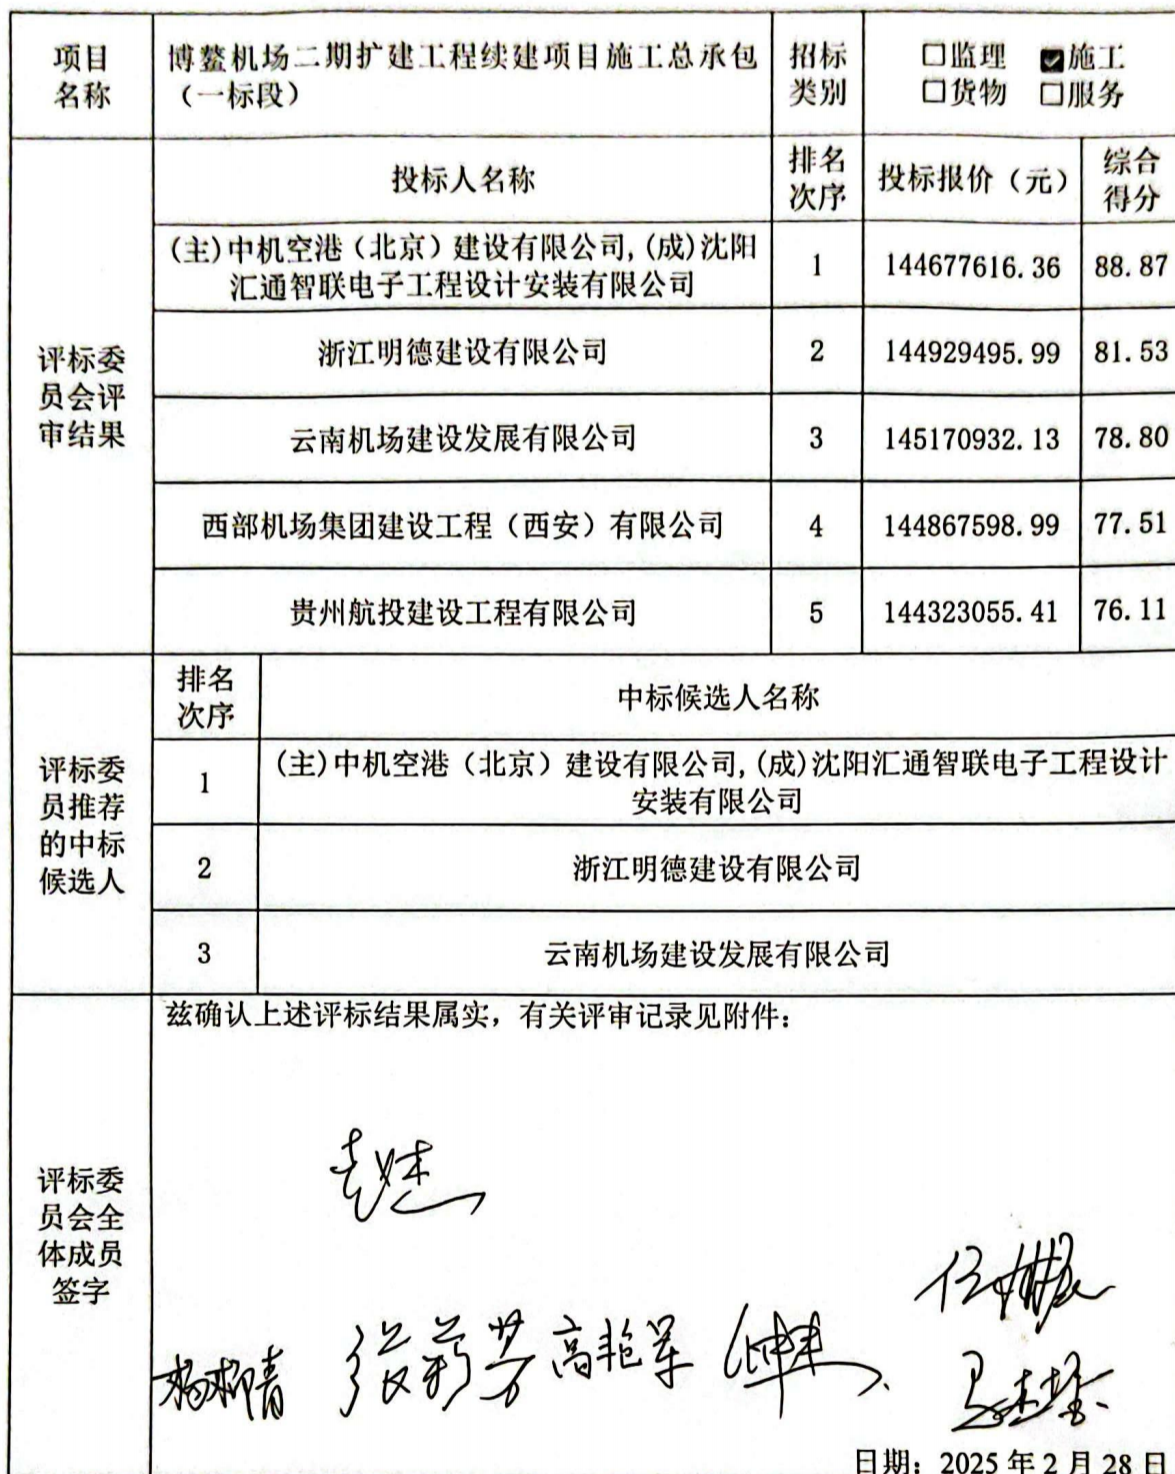 项目
名称
博鳌机场二期扩建工程续建项目施工总承包
（一标段）
招标
类别
☐监理 ☑施工
☐货物 ☐服务
评标委
员会评
审结果
投标人名称
排名
次序
投标报价（元）
综合
得分
(主)中机空港（北京）建设有限公司,(成)沈阳
汇通智联电子工程设计安装有限公司
1
144677616.36
88.87
浙江明德建设有限公司
2
144929495.99
81.53
云南机场建设发展有限公司
3
145170932.13
78.80
西部机场集团建设工程（西安）有限公司
4
144867598.99
77.51
贵州航投建设工程有限公司
5
144323055.41
76.11
评标委
员推荐
的中标
候选人
排名
次序
中标候选人名称
1
(主)中机空港（北京）建设有限公司,(成)沈阳汇通智联电子工程设计
安装有限公司
2
浙江明德建设有限公司
3
云南机场建设发展有限公司
评标委
员会全
体成员
签字
兹确认上述评标结果属实，有关评审记录见附件：
杨柳青 张莉芳 高艳军
日期：2025 年 2 月 28 日